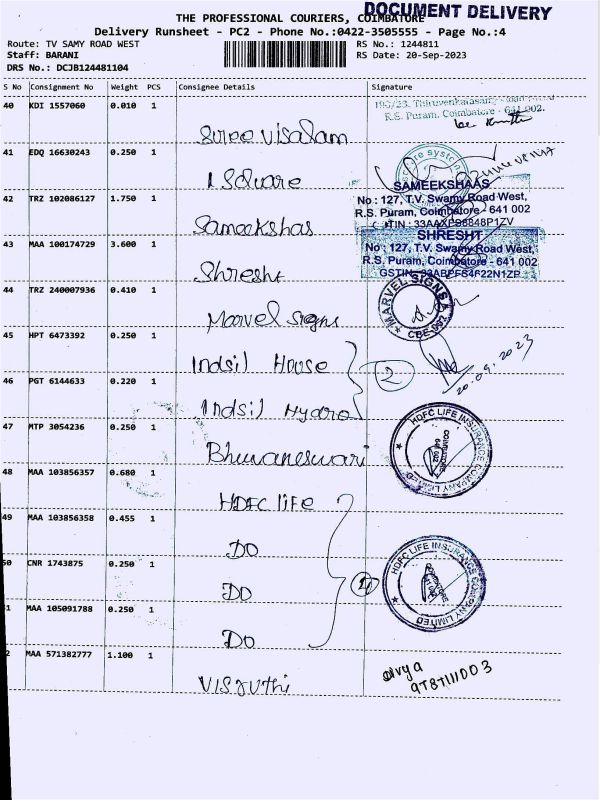 DOCUMENT DELIVERY
THE PROFESSIONAL COURIERS, COIMBATORE
Delivery Runsheet - PC2 - Phone No.:0422-3505555 - Page No.:4
Route: TV SAMY ROAD WEST
RS No.: 1244811
Staff: BARANI
RS Date: 20-Sep-2023
DRS No.: DCJB124481104
S No Consignment No Weight PCS Consignee Details Signature
40 KDI 1557060 0.010 1
R.S. Puram, Coimbatore - 641 002.
Sree Visalam
41 EDQ 16630243 0.250 1
I Square
SAMEEKSHAAS
42 TRZ 102086127 1.750 1
No : 127, T.V. Swamy Road West,
R.S. Puram, Coimbatore - 641 002
Sameekshas
43 MAA 100174729 3.600 1
SHRESHT
No : 127, T.V. Swamy Road West,
R.S. Puram, Coimbatore - 641 002
Shresht
44 TRZ 240007936 0.410 1
MARVEL SIGNS
CBE-002
Marvel Signs
45 HPT 6473392 0.250 1
Indsil House
2
20.09.2023
46 PGT 6144633 0.220 1
Indsil Hydro
47 MTP 3054236 0.250 1
HDFC LIFE INSURANCE COMPANY LIMITED
COIMBATORE
641 002
Bhuvaneswari
48 MAA 103856357 0.680 1
HDFC life
49 MAA 103856358 0.455 1
DO
50 CNR 1743875 0.250 1
HDFC LIFE INSURANCE COMPANY LIMITED
4
DO
51 MAA 105091788 0.250 1
DO
52 MAA 571382777 1.100 1
Visruthi